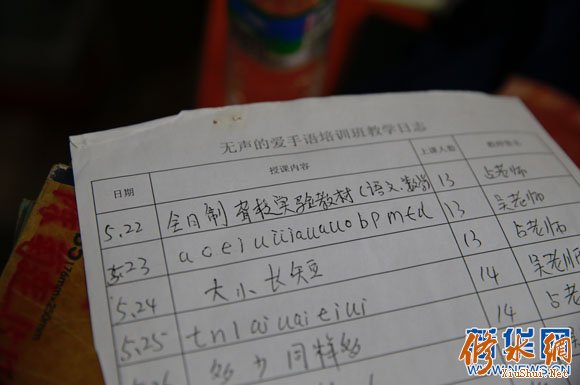 无声的爱手语培训班教学日志
日期 授课内容 上课人数 教师签名
5.22 全日制聋校实验教材(语文、数学) 13 占老师
5.23 a c e i u ü ia ua uo b p m f d 13 吴老师
5.24 大小长短 13 占老师
5.25 t n l ai ui ei ui 14 吴老师
多少同样多 14 占老
新华网
WWW.NEWS.CN
修水网
XiuShui.Net